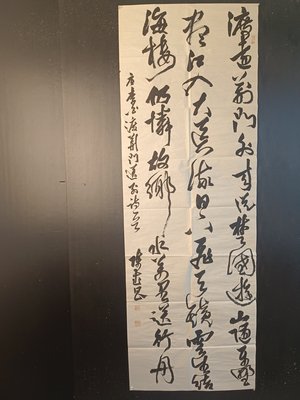 渡遠荊門外來從楚國遊山隨平野
盡江入大荒流月下飛天鏡雲生結
海樓仍憐故鄉水萬里送行舟
李白渡荊門送別詩